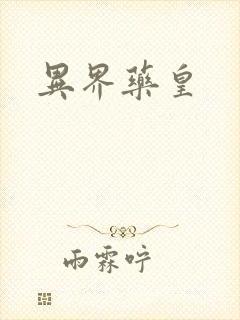 異界藥皇
雨霖咛